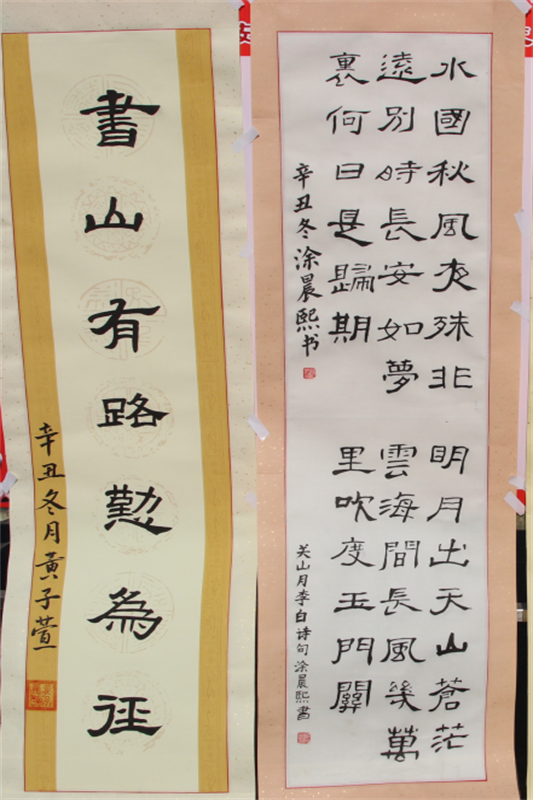 水國秋風夜殊非
遠別時長安如夢
裏何日是歸期
辛丑冬涂晨熙书
明月出天山蒼茫
雲海間長風幾萬
里吹度玉門關
关山月李白诗句涂晨熙書
書山有路勤為徑
辛丑冬月黄子萱